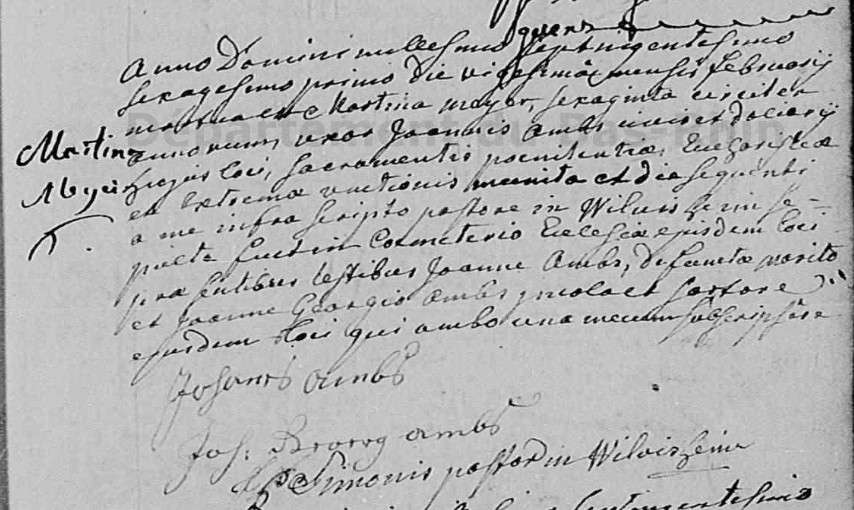 Anno Domini millesimo septingentesimo
sexagesimo primo die vigesima mensis februarij
mortua est Martina mayer, sexaginta circiter
Martina annorum, uxor Joannis Ambs civis et doliarij
Mayer hujus loci, sacramentis poenitentiae, Eucharistiae
et Extremae unctionis munita et die sequenti
a me infra scripto pastore in Wilwisheim se-
pulta fuit in Coemeterio Ecclesiae ejusdem loci
praesentibus testibus Joanne Ambs, defunctae marito
et Joanne Georgio Ambs incola et sartore
ejusdem loci qui ambo una mecum subscripsere
Johanes ambs
Joh: Georg ambs
Simonis pastor in Wilwisheim